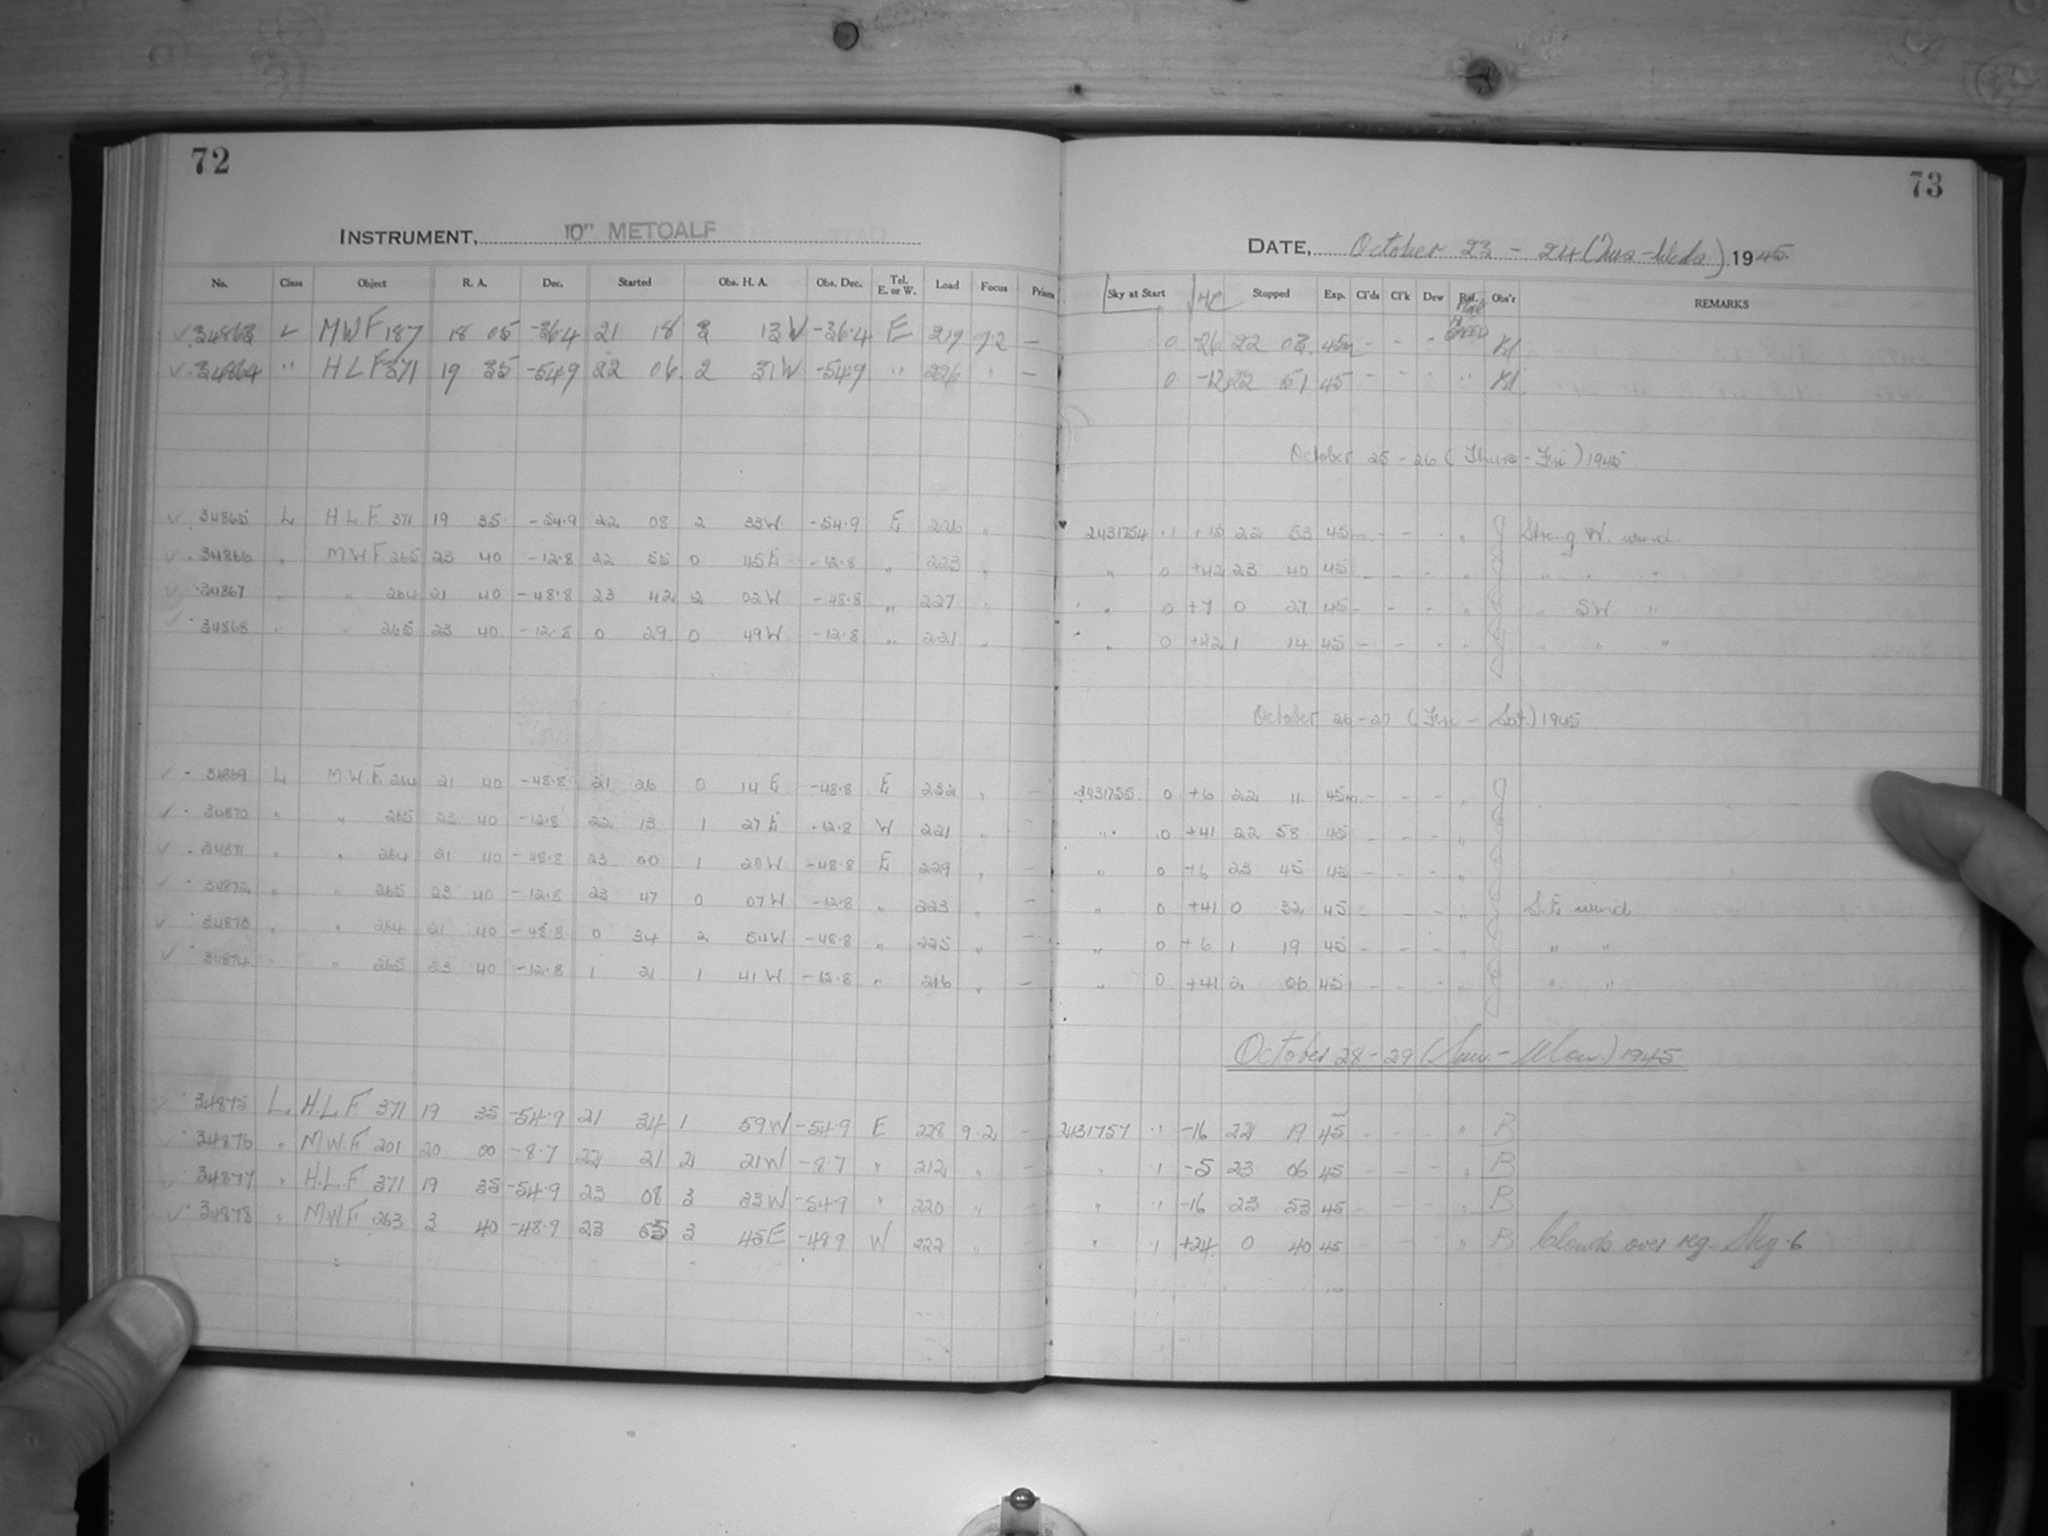 72
INSTRUMENT, 10" METCALF
No. Class Object R. A. Dec. Started Obs. H. A. Obs. Dec. Tel. E. or W. Load Focus Prisms
✓ 34863 L MWF 187 18 05 -36.4 21 18 13W -36.4 E 219 9.2 —
✓ 34864 " HLF 371 19 35 -54.9 22 06 2 31W -54.9 " 226 " —
✓ 34865 L H.L.F. 371 19 35 -54.9 22 08 2 33W -54.9 E 226 "
✓ 34866 " M.W.F 265 23 40 -12.8 22 55 0 45E -12.8 " 223 "
✓ 34867 " " 264 21 40 -48.8 23 42 2 02W -48.8 " 227 "
✓ 34868 " " 265 23 40 -12.8 0 29 0 49W -12.8 " 221 "
✓ 34869 L M.W.F. 264 21 40 -48.8 21 26 0 14E -48.8 E 232 " —
✓ 34870 " " 265 23 40 -12.8 22 13 1 27E -12.8 W 221 " —
✓ 34871 " " 264 21 40 -48.8 23 00 1 20W -48.8 E 229 " —
✓ 34872 " " 265 23 40 -12.8 23 47 0 07W -12.8 " 223 " —
✓ 34873 " " 264 21 40 -48.8 0 34 2 54W -48.8 " 225 " —
✓ 34874 " " 265 23 40 -12.8 1 21 1 41W -12.8 " 216 " —
✓ 34875 L H.L.F. 371 19 35 -54.9 21 34 1 59W -54.9 E 228 9.2 —
34876 " M.W.F. 201 20 00 -8.7 22 21 2 21W -8.7 " 212 " —
✓ 34877 " H.L.F. 371 19 35 -54.9 23 08 3 33W -54.9 " 220 " —
✓ 34878 " M.W.F. 263 3 40 -48.9 23 55 3 45E -48.9 W 222 " —
73
DATE, October 23 - 24 (Tues-Weds) 1945
Sky at Start Stopped Exp. Cl'ds Cl'k Dew Ref. Obs'r REMARKS
0 26 22 03 45m - - -
0 -12 22 51 45 - - - "
October 25 - 26 (Thurs - Fri) 1945
2431754 .1 22 53 45m - - - " J Strong W. wind
" 0 +42 23 40 45 - - - " J " " "
" 0 +7 0 27 45 - - - " J " SW. "
" 0 +42 1 14 45 - - - " J " " "
October 26-27 (Fri - Sat) 1945
2431755 0 +6 22 11 45m - - - " J
" 0 +41 22 58 45 - - - " J
" 0 +6 23 45 45 - - - " J
" 0 +41 0 32 45 - - - " J S.E. wind
" 0 +6 1 19 45 - - - " J " "
" 0 +41 2 06 45 - - - " J " "
October 28-29 (Sun. - Mon.) 1945
2431757 .1 -16 22 19 45 - - - " B
" .1 -5 23 06 45 - - - " B
" .1 -16 23 53 45 - - - " B
" .1 +24 0 40 45 " B Clouds over reg. Sky .6